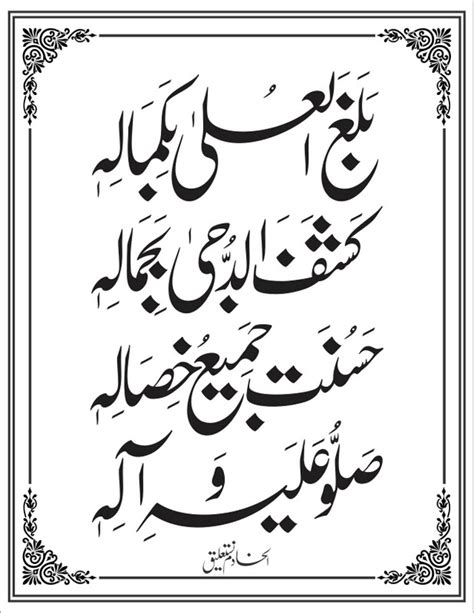 بَلَغَ العُلیٰ بِکَمَالِہٖ
کَشَفَ الدُّجیٰ بِجَمَالِہٖ
حَسُنَت جَمِیعُ خِصَالِہٖ
صَلُّو عَلَیہِ وَ آلِہٖ
الخادم نستعلیق